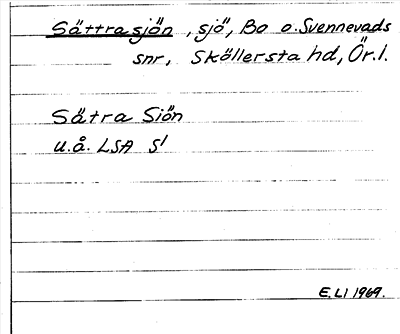 Sättrasjön, sjö, Bo o. Svennevads
snr, Sköllersta hd, Ör. l.
Sätra Siön
u.å. LSA S1
E. LI 1969.